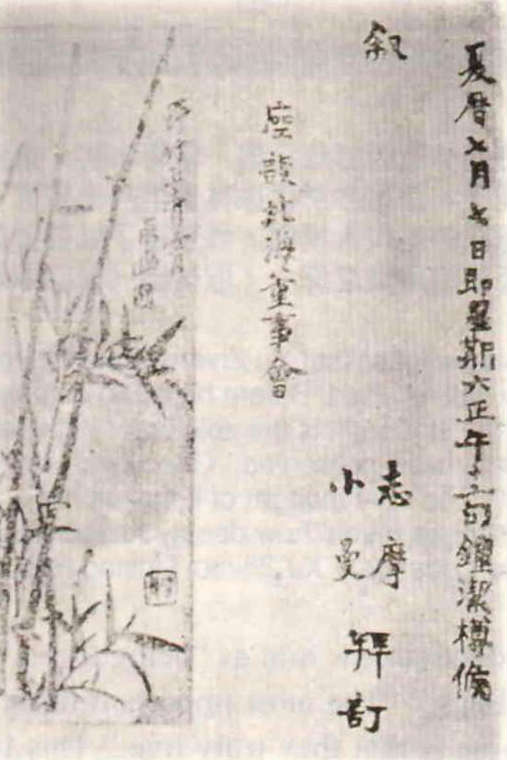 夏曆七月七日即星期六正午十二時謹潔樽候
叙
志摩
小曼
拜訂
座設北海董事會